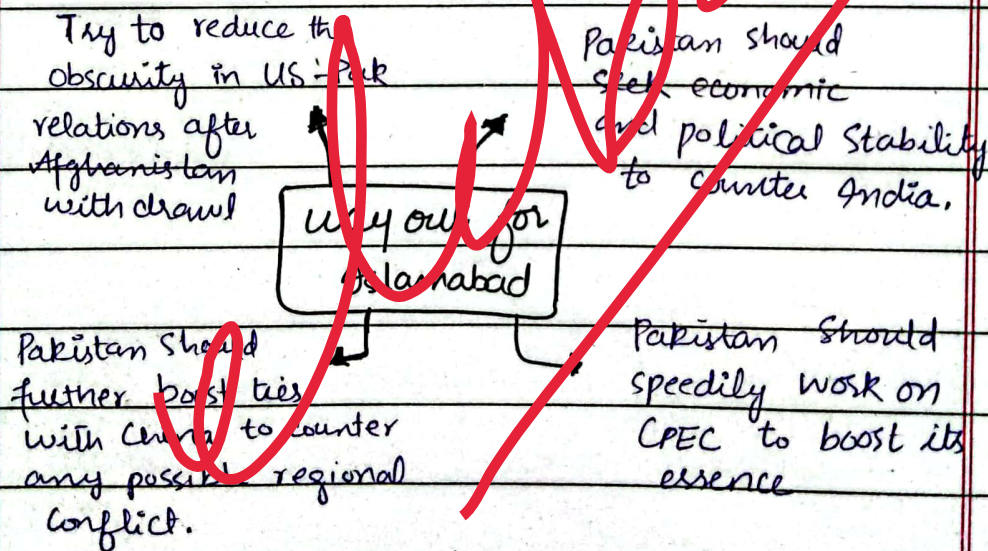 Try to reduce the
obscurity in US-Pak
relations after
Afghanistan
withdrawl
Pakistan should
seek economic
and political stability
to counter India.
Way out for
Islamabad
Pakistan should
further boost ties
with China to counter
any possible regional
conflict.
Pakistan should
speedily work on
CPEC to boost its
essence